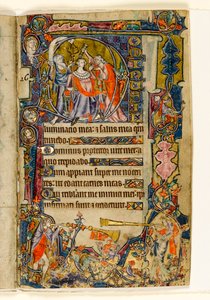 luminacio mea: et salus mea que
timebo.
Dominus protector vite mee: a
quo trepidabo.
Dum appiant super me nocen
tes: ut edant carnes meas.
Qui tribulant me inimici mei: ipsi
infirmati sunt et ceciderunt.